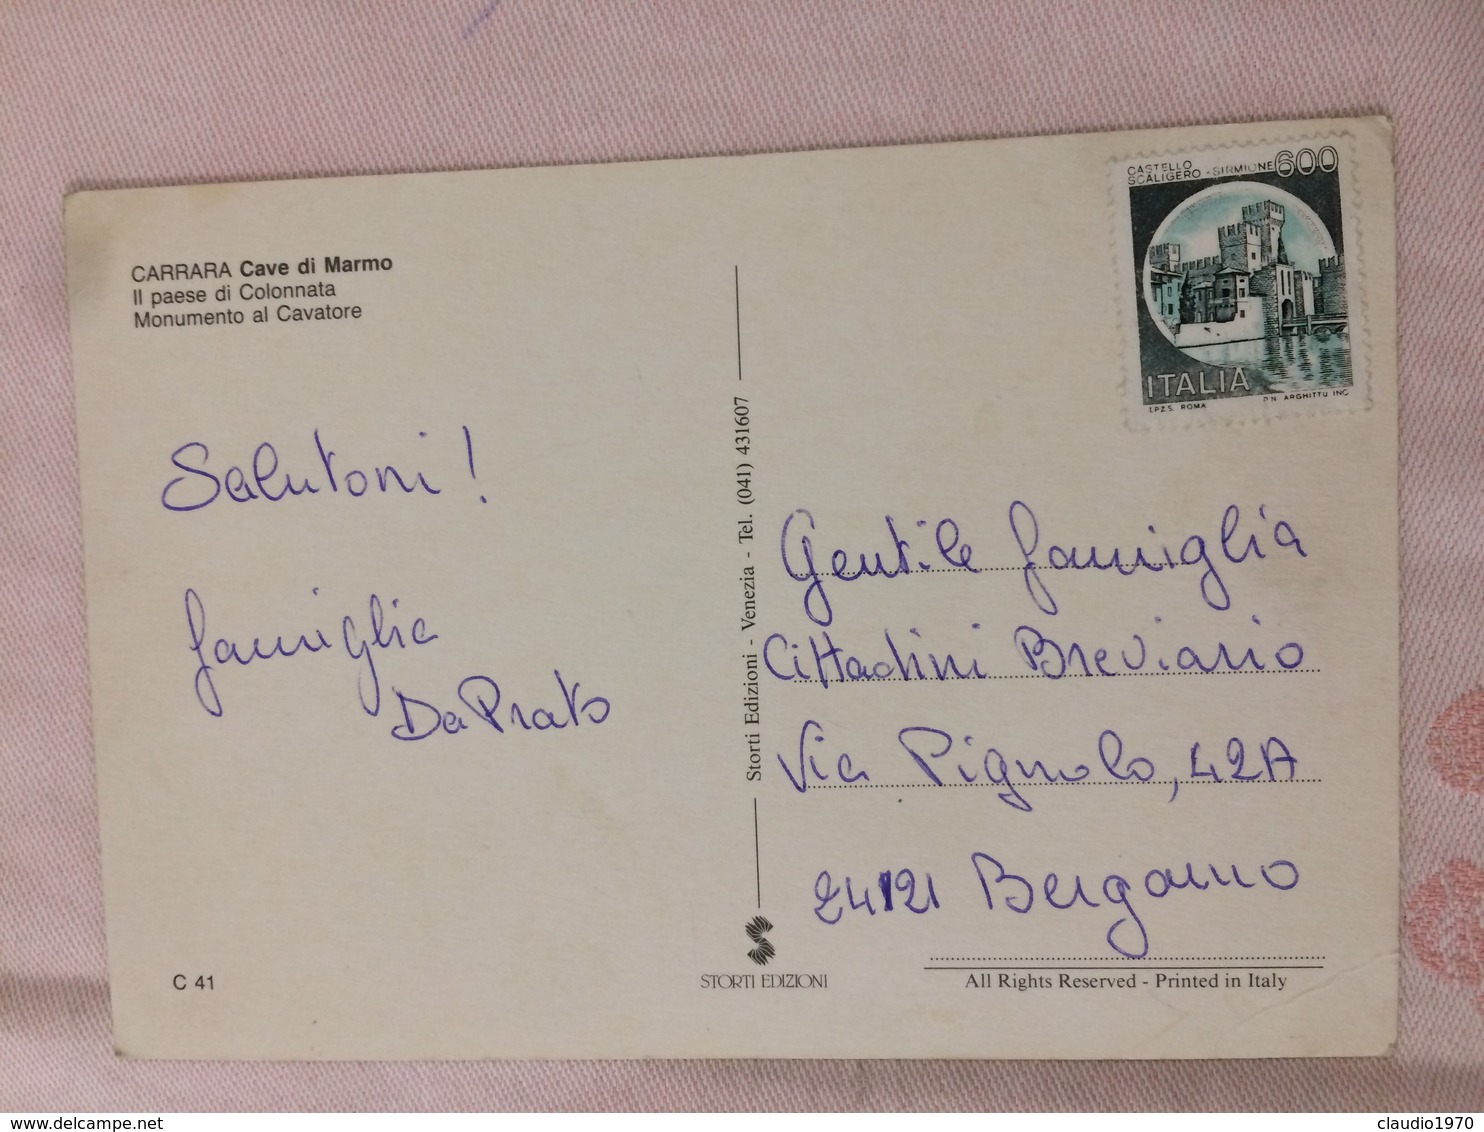 CARRARA Cave di Marmo
Il paese di Colonnata
Monumento al Cavatore
Salutoni!
famiglia
Da Prato
C 41
Storti Edizioni - Venezia - Tel. (041) 431607
STORTI EDIZIONI
CASTELLO
SCALIGERO - SIRMIONE 600
ITALIA
I.P.Z.S. ROMA P.N. ARGHITTU INC.
Gentile famiglia
Cittadini Breviario
Via Pignolo, 42A
24121 Bergamo
All Rights Reserved - Printed in Italy
delcampe.net
claudio1970